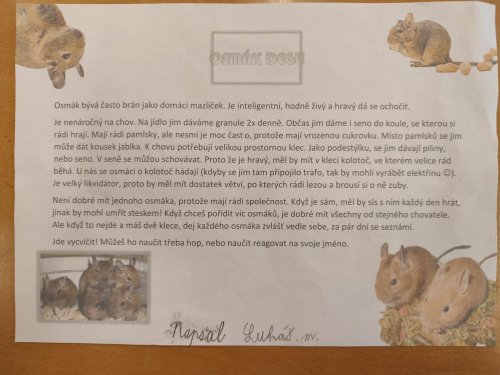 OSMÁK DEGU
Osmák bývá často brán jako domácí mazlíček. Je inteligentní, hodně živý a hravý dá se ochočit.
Je nenáročný na chov. Na jídlo jim dáváme granule 2x denně. Občas jim dáme i seno do koule, se kterou si
rádi hrají. Mají rádi pamlsky, ale nesmí je moc často, protože mají vrozenou cukrovku. Místo pamlsků se jim
může dát kousek jablka. K chovu potřebují velikou prostornou klec. Jako podestýlku, se jim dávají piliny,
nebo seno. V seně se můžou schovávat. Proto že je hravý, měl by mít v kleci kolotoč, ve kterém velice rád
běhá. U nás se osmáci o kolotoč hádají (kdyby se jim tam připojilo trafo, tak by mohli vyrábět elektřinu ☺).
Je velký likvidátor, proto by měl mít dostatek větví, po kterých rádi lezou a brousí si o ně zuby.
Není dobré mít jednoho osmáka, protože mají rádi společnost. Když je sám, měl by sis s ním každý den hrát,
jinak by mohl umřít steskem! Když chceš pořídit víc osmáků, je dobré mít všechny od stejného chovatele.
Ale když to nejde a máš dvě klece, dej každého osmáka zvlášť vedle sebe, za pár dní se seznámí.
Jde vycvičit! Můžeš ho naučit třeba hop, nebo naučit reagovat na svoje jméno.
Napsal Lukáš. m.